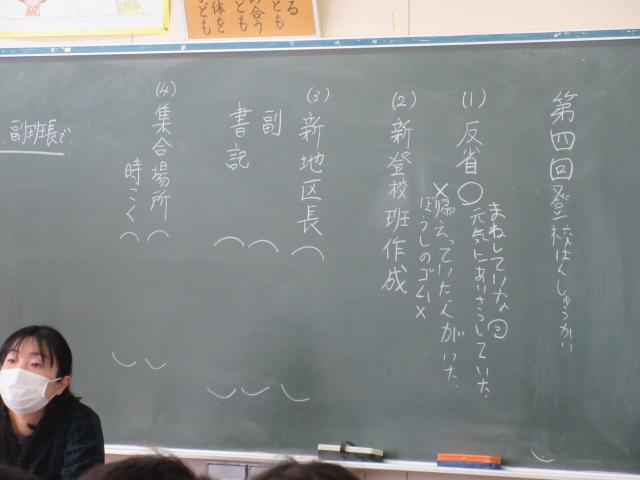 第四回登校はんしゅうかい
(1) 反省
○元気にあいさつしていた。
まねしていな
×帰えっていた人がいた。
ぼうしのゴム×
(2) 新登校班作成
(3) 新地区長（　）
副（　）
書記（　）
(4) 集合場所（　）
時こく（　）
副班長で